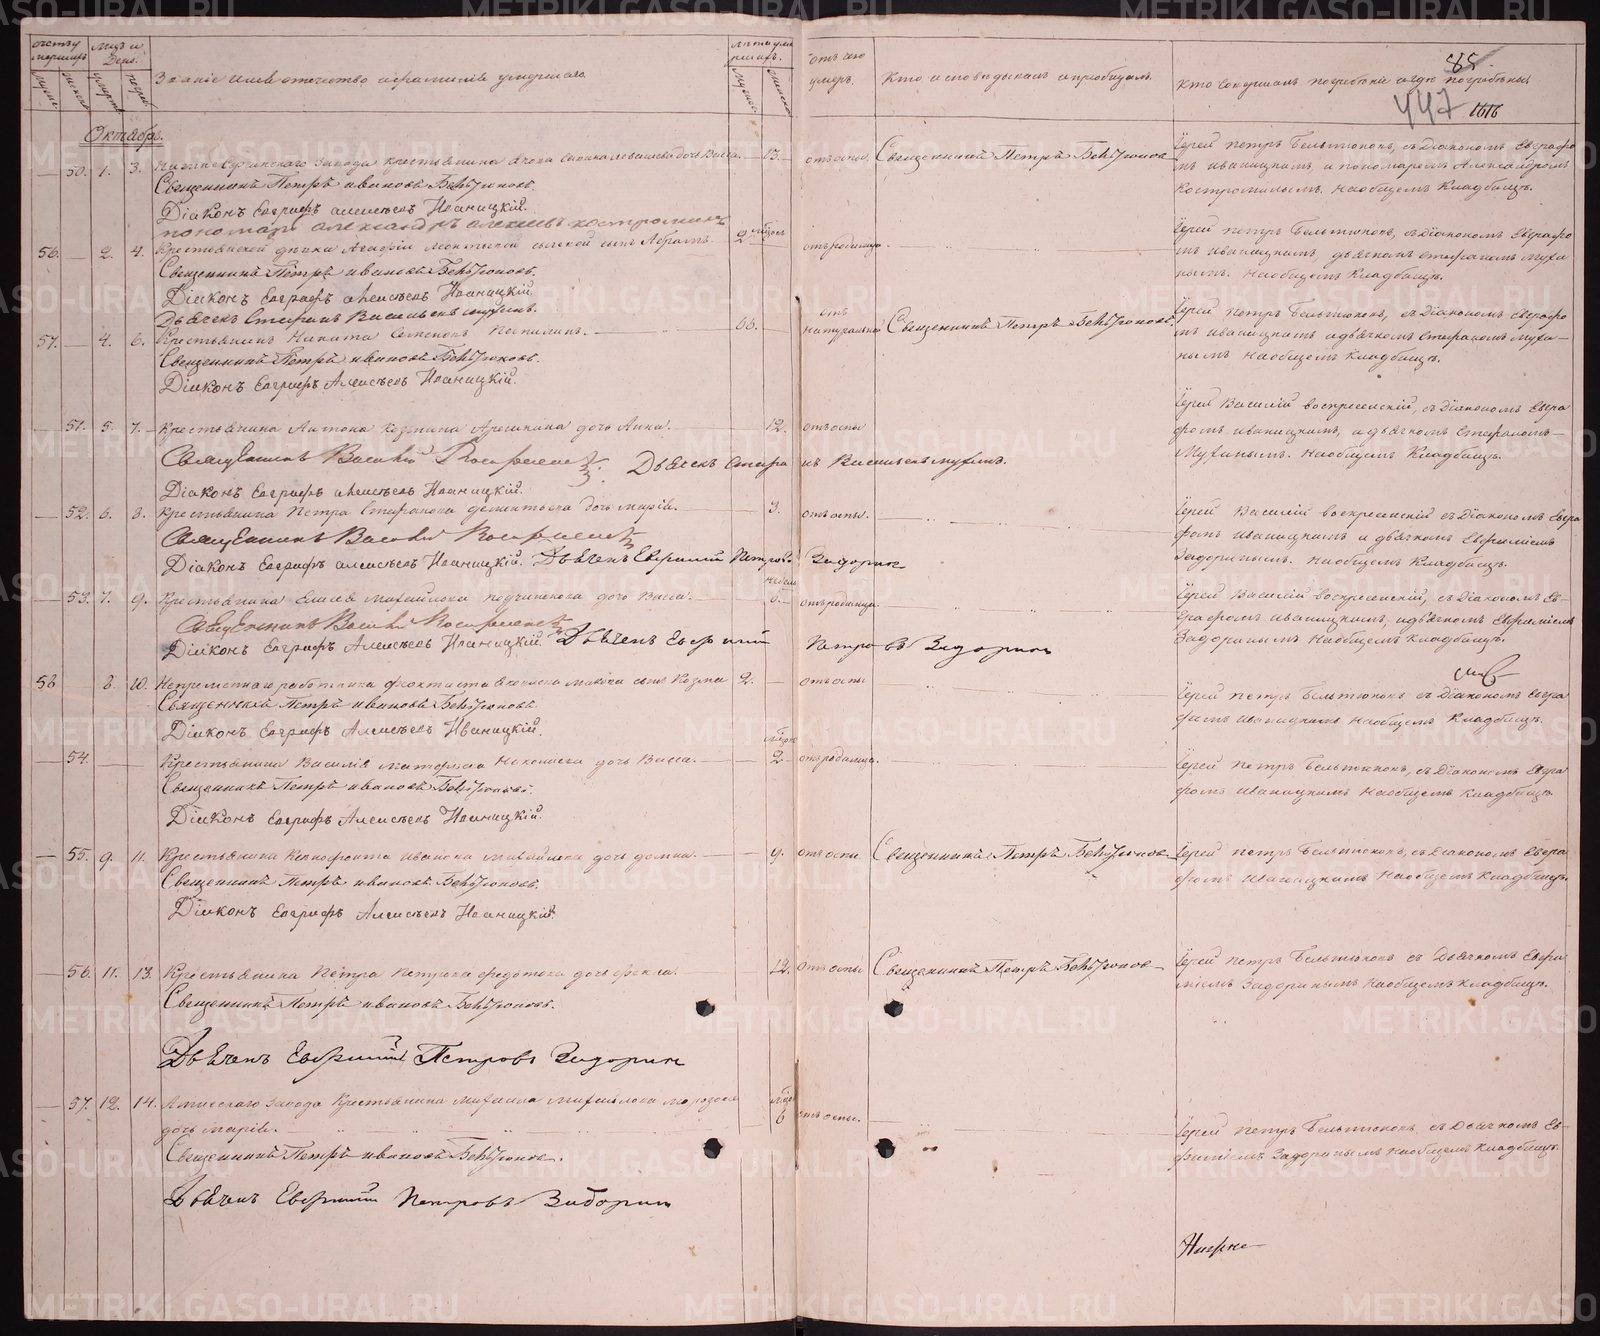 Счетъ умершихъ
Мцъ и День.
Званіе имя отечество и фамилія умершаго
лета умершаго
отъ чего умеръ.
Кто исповедывалъ и приобщалъ.
Кто совершалъ погребеніе и где погребены
85
447
Октябрь.
50. 1. 3.
крестьянина
дочь Васса.
13.
отъ оспы.
Священникъ Петръ Бельтюковъ
Іерей Петръ Бельтюковъ, съ Діакономъ Евграфо
мъ Иваницкимъ, и пономаремъ Александромъ
Костроминымъ. На общемъ Кладбищѣ.
Священникъ Петръ Ивановъ Бельтюковъ.
Діаконъ Евграфъ Алексѣевъ Иваницкій.
пономарь Александръ Алексеевъ Костроминъ
56. 2. 4.
Крестьянской девки Агафіи Леонтьевой
сынъ Абрамъ.
2 мѣсяц
отъ родимца.
Іерей Петръ Бельтюковъ, съ Діакономъ Евграфо
мъ Иваницкимъ, дьячкомъ Стефаномъ Мухи
нымъ. На общемъ Кладбищѣ.
Священникъ Петръ Ивановъ Бельтюковъ.
Діаконъ Евграфъ Алексѣевъ Иваницкій.
Дьячекъ Стефанъ Васильевъ Мухинъ.
57. 4. 6.
Крестьянинъ Никита Семеновъ
66.
отъ натуральной
Священникъ Петръ Бельтюковъ.
Іерей Петръ Бельтюковъ, съ Діакономъ Евграфо
мъ Иваницкимъ и дьячкомъ Стефаномъ Мухи-
нымъ На общемъ Кладбищѣ.
Священникъ Петръ Ивановъ Бельтюковъ.
Діаконъ Евграфъ Алексѣевъ Иваницкій.
51. 5. 7.
Крестьянина Антона Козмина
дочь Анна.
12.
отъ оспы
Іерей Василій Воскресенскій, съ Діакономъ Евгра
фомъ Иваницкимъ, и дьячкомъ Стефаномъ
Мухинымъ. На общемъ Кладбищѣ.
Священникъ Василій Воскресенскій. Дьячекъ Стефанъ Васильевъ Мухинъ.
Діаконъ Евграфъ Алексѣевъ Иваницкій.
52. 6. 8.
Крестьянина Петра Стефанова Дементьева дочь Марія.
3.
отъ оспы.
Іерей Василій Воскресенскій съ Діакономъ Евгра
фомъ Иваницкимъ и дьячкомъ Евфиміемъ
Задоринымъ. На общемъ Кладбищѣ.
Священникъ Василій Воскресенскій
Діаконъ Евграфъ Алексѣевъ Иваницкій. Дьячекъ Евфимій Петровъ Задоринъ
53. 7. 9.
Крестьянина
Михайлова
дочь Васса.
недель
5.
отъ родимца.
Іерей Василій Воскресенскій, съ Діакономъ Ев-
графомъ Иваницкимъ, и дьячкомъ Евфиміемъ
Задоринымъ На общемъ Кладбищѣ.
Священникъ Василій Воскресенскій
Діаконъ Евграфъ Алексѣевъ Иваницкій. Дьячекъ Евфимій Петровъ Задоринъ
58 8. 10.
Непременнаго работника
сынъ Козма
2.
отъ оспы
Іерей Петръ Бельтюковъ съ Діакономъ Евгра
фомъ Иваницкимъ На общемъ Кладбищѣ.
Священникъ Петръ Ивановъ Бельтюковъ.
Діаконъ Евграфъ Алексѣевъ Иваницкій.
54.
Крестьянина Василія Матфеева
дочь Васса.
2
отъ родимца.
Іерей Петръ Бельтюковъ, съ Діакономъ Евгра
фомъ Иваницкимъ На общемъ Кладбищѣ.
Священникъ Петръ Ивановъ Бельтюковъ.
Діаконъ Евграфъ Алексѣевъ Иваницкій.
55. 9. 11.
Крестьянина Ксенофонта Иванова
дочь Домна.
9.
отъ оспы
Священникъ Петръ Бельтюковъ
Іерей Петръ Бельтюковъ, съ Діакономъ Евгра
фомъ Иваницкимъ На общемъ Кладбищѣ.
Священникъ Петръ Ивановъ Бельтюковъ.
Діаконъ Евграфъ Алексѣевъ Иваницкій.
56. 11. 13.
Крестьянина Петра Петрова Федотова дочь Фекла.
12.
отъ оспы
Священникъ Петръ Бельтюковъ
Іерей Петръ Бельтюковъ съ Дьячкомъ Евфи
міемъ Задоринымъ На общемъ Кладбищѣ.
Священникъ Петръ Ивановъ Бельтюковъ.
Дьячекъ Евфимій Петровъ Задоринъ
57. 12. 14.
завода Крестьянина Михаила Михайлова Морозова
дочь Марія.
6
отъ оспы.
Іерей Петръ Бельтюковъ, съ Дьячкомъ Ев-
фиміемъ Задоринымъ На общемъ Кладбищѣ.
Священникъ Петръ Ивановъ Бельтюковъ.
Дьячекъ Евфимій Петровъ Задоринъ
Нижне
METRIKI.GASO-URAL.RU